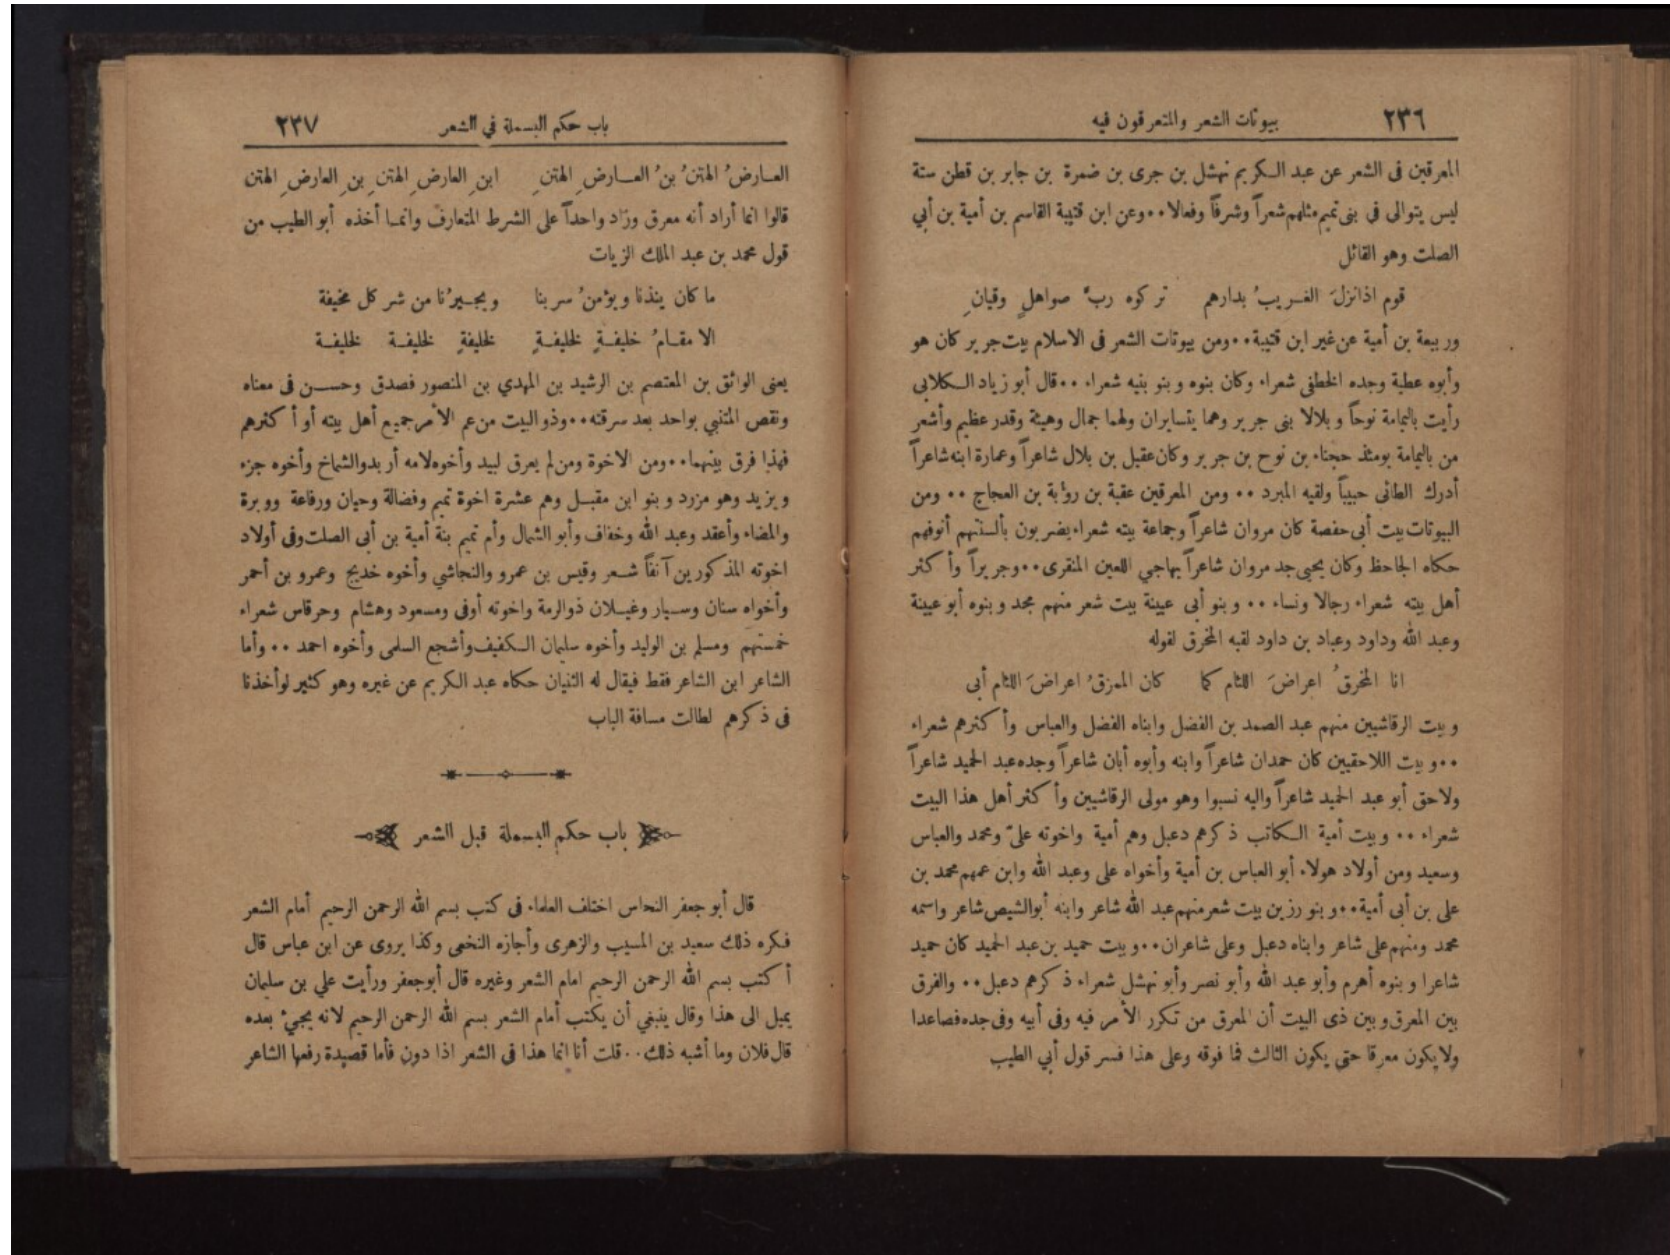 ٢٣٦ بيوتات الشعر والمتعرقون فيه
المعرقين فى الشعر عن عبد الكريم نهشل بن جرى بن ضمرة بن جابر بن قطن ستة
ليس يتوالى فى بنى تميم مثلهم شعراً وشرفاً وفعالا٠٠وعن ابن قتيبة القاسم بن أمية بن أبي
الصلت وهو القائل
قوم اذانزلَ الغريبُ بدارهم تركوه ربَّ صواهلٍ وقيانِ
وربيعة بن أمية عن غير ابن قتيبة٠٠ومن بيوتات الشعر فى الاسلام بيت جرير كان هو
وأبوه عطية وجده الخطفى شعراء وكان بنوه وبنو بنيه شعراء ٠٠قال أبو زياد الكلابى
رأيت باليمامة نوحاً وبلالا بنى جرير وهما يتسايران ولهما جمال وهيئة وقدر عظيم وأشعر
من باليمامة يومئذ حجناء بن نوح بن جرير وكان عقيل بن بلال شاعراً وعمارة ابنه شاعراً
أدرك الطائى حبيباً ولقيه المبرد ٠٠ ومن المعرقين عقبة بن رؤبة بن العجاج ٠٠ ومن
البيوتات بيت أبى حفصة كان مروان شاعراً وجماعة بيته شعراء يضربون بألسنتهم أنوفهم
حكاه الجاحظ وكان يحيى جد مروان شاعراً يهاجي اللعين المنقرى٠٠وجريراً وأكثر
أهل بيته شعراء رجالا ونساء ٠٠ وبنو أبى عيينة بيت شعر منهم محمد وبنوه أبو عيينة
وعبد الله وداود وعباد بن داود لقبه المخرق لقوله
انا المخرقُ اعراضَ اللئام كما كان الممزقُ اعراضَ اللئام أبى
وبيت الرقاشيين منهم عبد الصمد بن الفضل وابناه الفضل والعباس وأكثرهم شعراء
٠٠وبيت اللاحقيين كان حمدان شاعراً وابنه وأبوه أبان شاعراً وجده عبد الحميد شاعراً
ولاحق أبو عبد الحميد شاعراً واليه نسبوا وهو مولى الرقاشيين وأكثر أهل هذا البيت
شعراء ٠٠ وبيت أمية الكاتب ذكرهم دعبل وهم أمية واخوته علىّ ومحمد والعباس
وسعيد ومن أولاد هولاء أبو العباس بن أمية وأخواه على وعبد الله وابن عمهم محمد بن
على بن أبى أمية٠٠وبنو رزين بيت شعر منهم عبد الله شاعر وابنه أبوالشيص شاعر واسمه
محمد ومنهم على شاعر وابناه دعبل وعلى شاعران٠٠وبيت حميد بن عبد الحميد كان حميد
شاعرا وبنوه أهرم وأبو عبد الله وأبو نصر وأبو نهشل شعراء ذكرهم دعبل٠٠ والفرق
بين المعرق وبين ذى البيت أن المعرق من تكرر الأمر فيه وفى أبيه وفى جده فصاعدا
ولا يكون معرقا حتى يكون الثالث فما فوقه وعلى هذا فسر قول أبي الطيب
باب حكم البسملة في الشعر ٢٣٧
العارضُ الهتنُ بنُ العارضِ الهتنِ ابنِ العارضِ الهتنِ بنِ العارضِ الهتن
قالوا انما أراد أنه معرق وزاد واحداً على الشرط المتعارف وانما أخذه أبو الطيب من
قول محمد بن عبد الملك الزيات
ما كان ينذنا ويؤمنُ سربنا ويجيرُنا من شر كل مخيفة
الا مقامُ خليفةٍ لخليفةٍ لخليفةٍ لخليفة لخليفة
يعنى الواثق بن المعتصم بن الرشيد بن المهدي بن المنصور فصدق وحسن فى معناه
ونقص المتنبي بواحد بعد سرقته٠٠وذو البيت من عم الأمر جميع أهل بيته أو أكثرهم
فهذا فرق بينهما٠٠ومن الاخوة ومن لم يعرق لبيد وأخوه لامه أربد والشماخ وأخوه جزء
ويزيد وهو مزرد وبنو ابن مقبل وهم عشرة اخوة تميم وفضالة وحيان ورفاعة ووبرة
والمضاء وأعقد وعبد الله وخفاف وأبو الشمال وأم تميم بنة أمية بن أبى الصلت وفى أولاد
اخوته المذكورين آنفاً شعر وقيس بن عمرو والنجاشي وأخوه خديج وعمرو بن أحمر
وأخواه سنان وسيار وغيلان ذوالرمة واخوته أوفى ومسعود وهشام وحرقاس شعراء
خمستهم ومسلم بن الوليد وأخوه سليمان الكفيف وأشجع السلمى وأخوه احمد ٠٠ وأما
الشاعر ابن الشاعر فقط فيقال له الثنيان حكاه عبد الكريم عن غيره وهو كثير لو أخذنا
فى ذكرهم لطالت مسافة الباب
باب حكم البسملة قبل الشعر
قال أبو جعفر النحاس اختلف العلماء فى كتب بسم الله الرحمن الرحيم أمام الشعر
فكره ذلك سعيد بن المسيب والزهرى وأجازه النخعى وكذا يروى عن ابن عباس قال
أكتب بسم الله الرحمن الرحيم امام الشعر وغيره قال أبوجعفر ورأيت علي بن سليمان
يميل الى هذا وقال ينبغي أن يكتب أمام الشعر بسم الله الرحمن الرحيم لانه يجيء بعده
قال فلان وما أشبه ذلك٠٠قلت أنا انما هذا فى الشعر اذا دون فأما قصيدة رفعها الشاعر